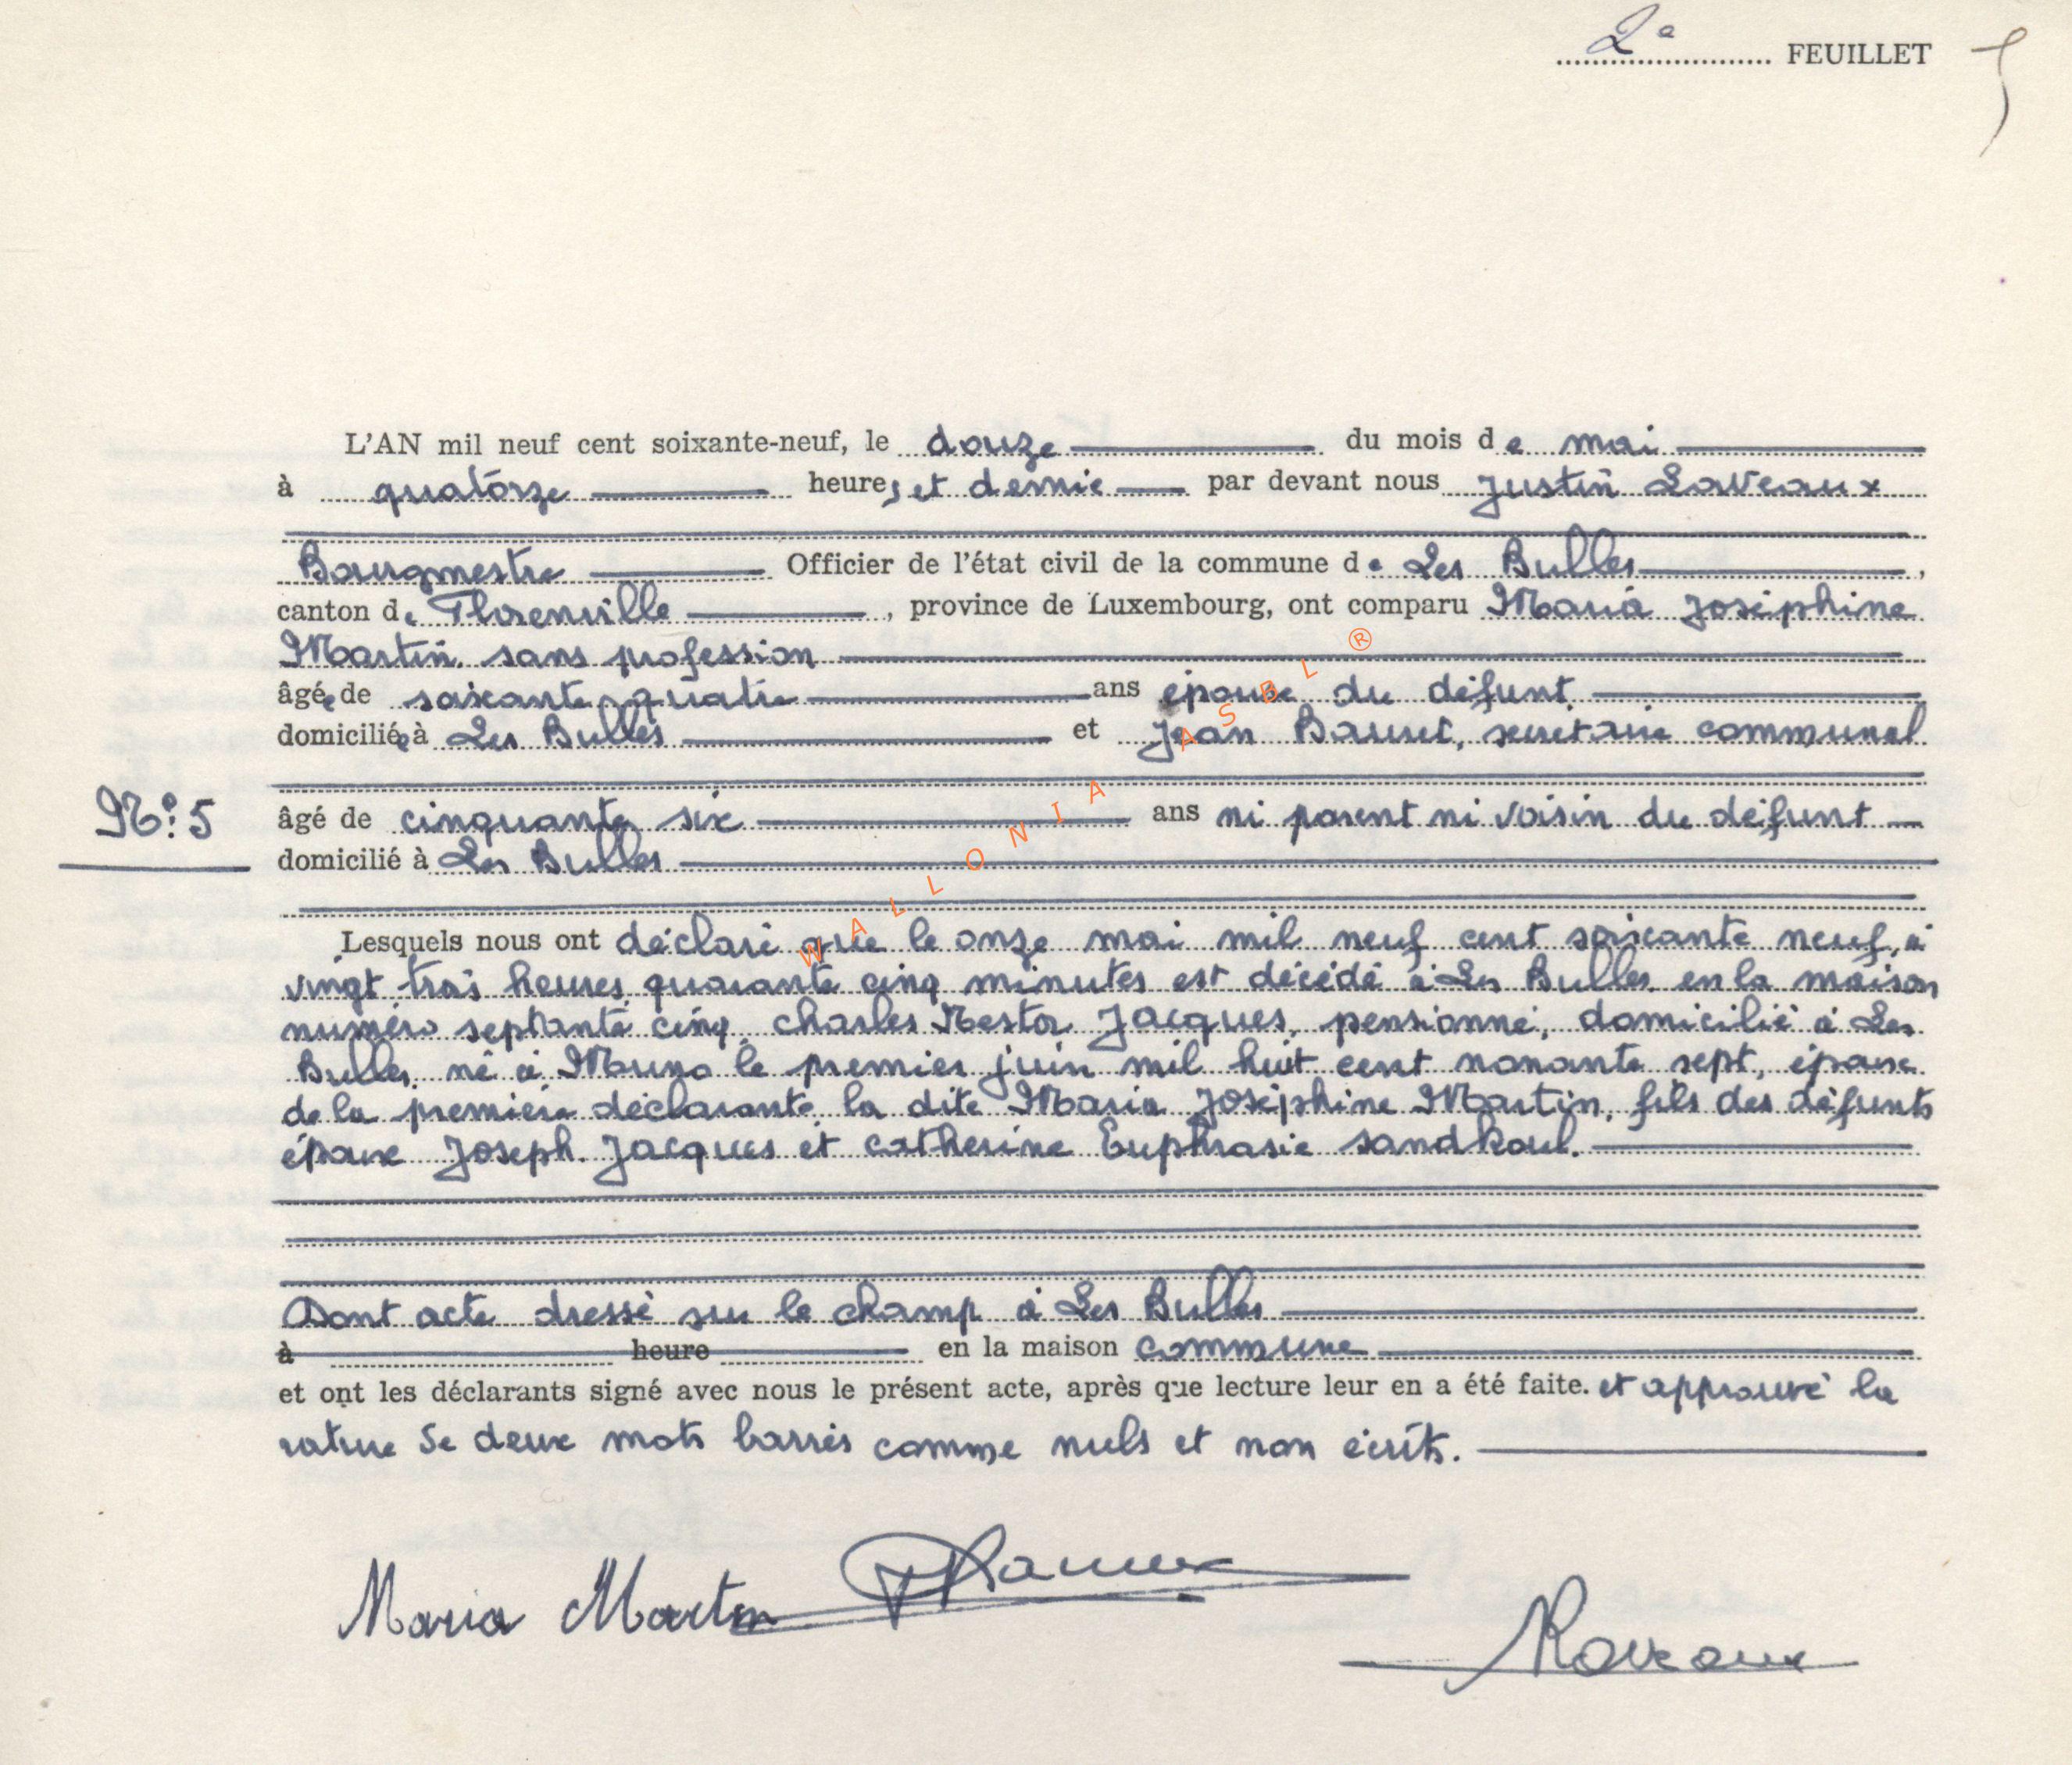 2e FEUILLET
L'AN mil neuf cent soixante-neuf, le douze du mois de mai
à quatorze heures et demie par devant nous Justin Laveaux
Bourgmestre Officier de l'état civil de la commune de Les Bulles,
canton de Florenville, province de Luxembourg, ont comparu Maria Joséphine
Martin, sans profession
âgée de soixante quatre ans épouse du défunt
domiciliée à Les Bulles et Jean, secrétaire communal
N° 5
âgé de cinquante six ans ni parent ni voisin du défunt
domicilié à Les Bulles
Lesquels nous ont déclaré que le onze mai mil neuf cent soixante neuf, à
vingt trois heures quarante cinq minutes est décédé à Les Bulles en la maison
numéro septante cinq, Charles Nestor Jacques, pensionné, domicilié à Les
Bulles, né à Muno le premier juin mil huit cent nonante sept, époux
de la première déclarante, la dite Maria Joséphine Martin, fils des défunts
époux Joseph Jacques et Catherine Euphrasie Sandkoul.
Dont acte dressé sur le champ à Les Bulles
à heure en la maison commune
et ont les déclarants signé avec nous le présent acte, après que lecture leur en a été faite. et approuvé la
rature de deux mots barrés comme nuls et non écrits.
Maria Martin
Laveaux
WALLONIA ASBL ®